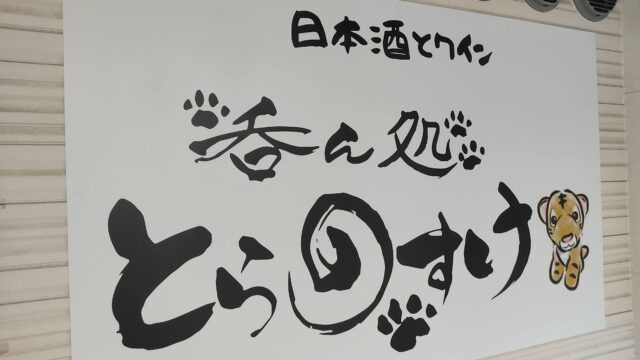 日本酒とワイン
呑ん処
とらのすけ